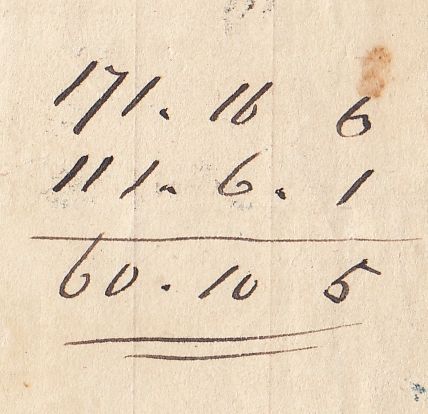 171. 16 6
111. 6. 1
60. 10 5